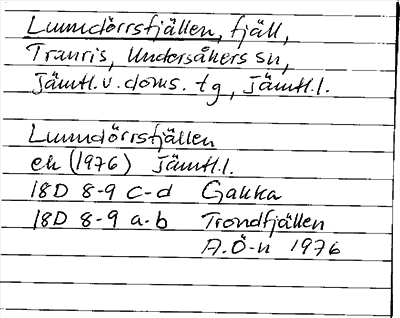 Lunndörrsfjällen, fjäll,
Tranris, Undersåkers sn,
Jämtl.v.doms. tg, Jämtl.l.
Lunndörrsfjällen
ek (1976) Jämtl.l.
18D 8-9 c-d Gakka
18D 8-9 a-b Trondfjällen
A.Ö-n 1976